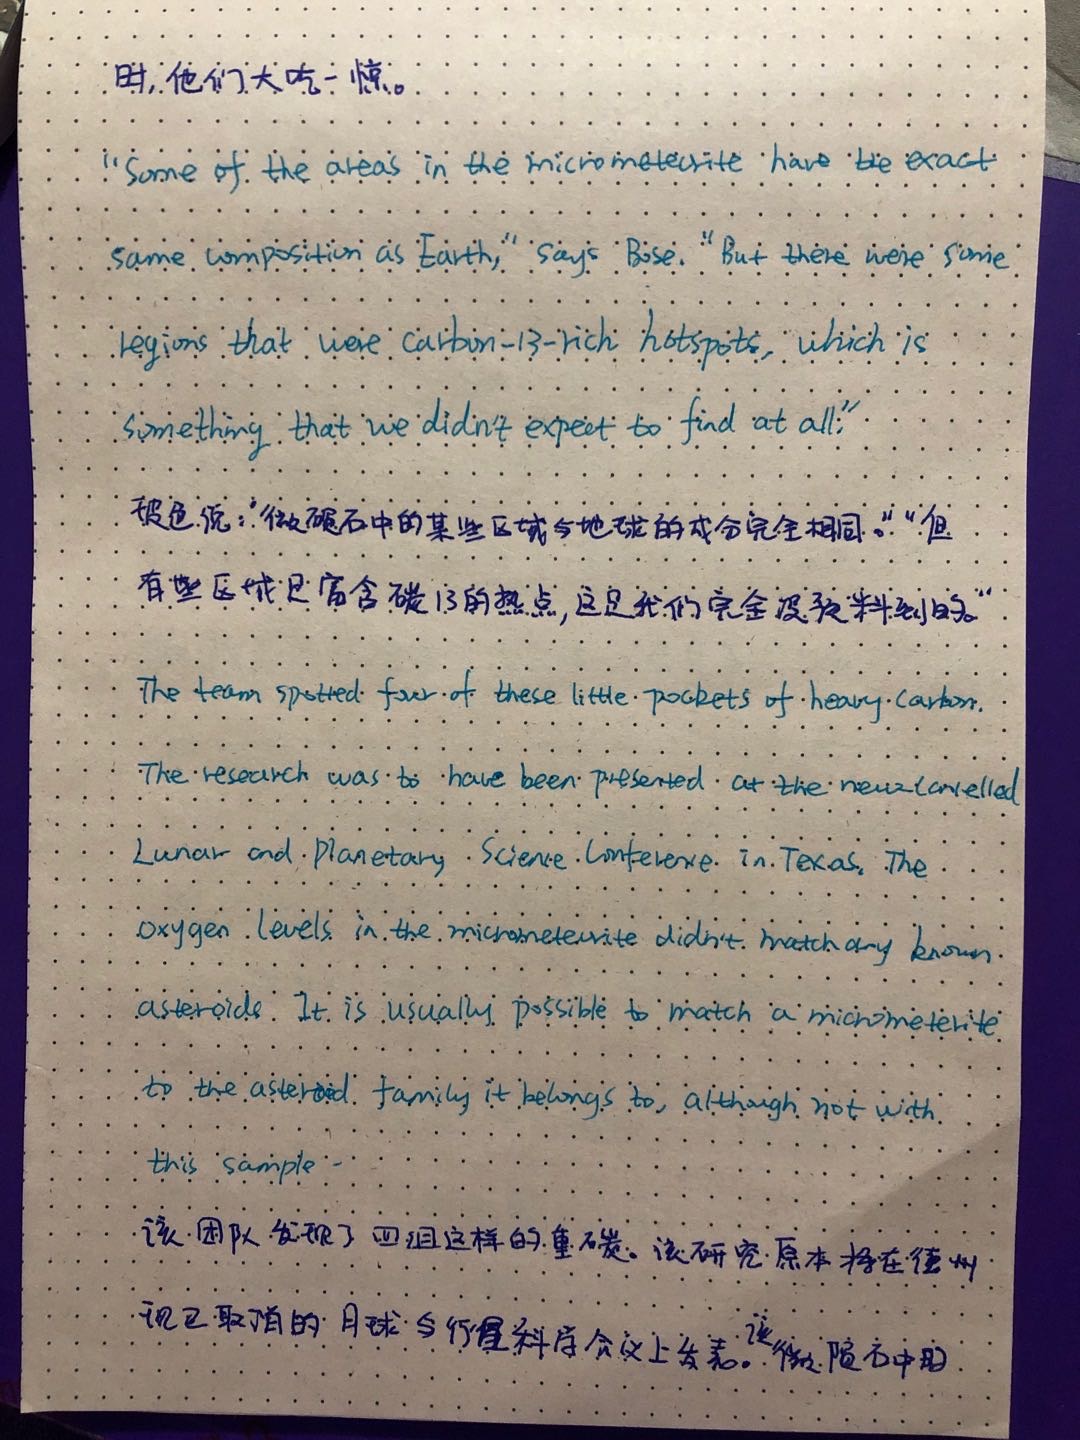 时,他们大吃一惊。
"Some of the areas in the micrometeurite have the exact
same composition as Earth," says Bose. "But there were some
regions that were carbon-13-rich hotspots, which is
something that we didn't expect to find at all."
玻色说:"微陨石中的某些区域与地球的成分完全相同。" "但
有些区域是富含碳13的热点,这是我们完全没预料到的。"
The team spotted four of these little pockets of heavy carbon.
The research was to have been presented at the cancelled
Lunar and Planetary Science Conference in Texas. The
oxygen levels in the micrometeurite didn't match any known
asteroids. It is usually possible to match a micrometerite
to the asteroid family it belongs to, although not with
this sample -
该团队发现了四组这样的重碳。该研究原本将在德州
现已取消的月球与行星科学会议上发表。该微陨石中的